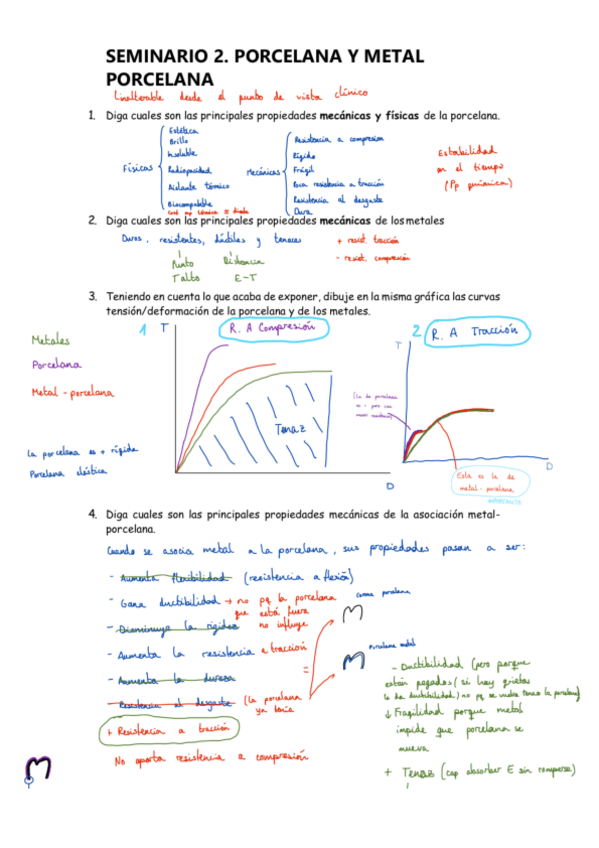 SEMINARIO 2. PORCELANA Y METAL
PORCELANA
Inalterable desde el punto de vista clínico
1. Diga cuales son las principales propiedades mecánicas y físicas de la porcelana.
Físicas
Estética
Brillo
Insoluble
Radiopacidad
Aislante térmico
Biocompatible
Mecánicas
Resistencia a compresion
Rígida
Frágil
Poca resistencia a tracción
Resistencia al desgaste
Dura
Estabilidad
en el tiempo
(Pp química)
2. Diga cuales son las principales propiedades mecánicas de los metales
Duros, resistentes, dúctiles y tenaces
Punto
T alto
Distancia
E-T
+ resist tracción
- resist. compresión
3. Teniendo en cuenta lo que acaba de exponer, dibuje en la misma gráfica las curvas
tensión/deformación de la porcelana y de los metales.
Metales
Porcelana
Metal - porcelana
La porcelana es + rígida
Porcelana elástica
1
T
R. A Compresión
Tenaz
D
2
R. A Tracción
T
D
Esta es la de
metal - porcelana
IMPORTANTE
4. Diga cuales son las principales propiedades mecánicas de la asociación metal-
porcelana.
Cuando se asocia metal a la porcelana, sus propiedades pasan a ser:
- Aumenta flexibilidad (resistencia a flexión)
- Gana ductibilidad → no pq la porcelana
que está fuera
no influye
- Disminuye la rigidez
- Aumenta la resistencia a tracción
- Aumenta la dureza
- Resistencia al desgaste (la porcelana
ya tenía
+ Resistencia a tracción
No aporta resistencia a compresión
=
corona porcelana
porcelana metal
- Ductibilidad (pero porque
están pegados (si hay grietas
↓ Fragilidad porque metal
impide que porcelana se
mueva
+ Tenaz (cap absorber E sin romperse)